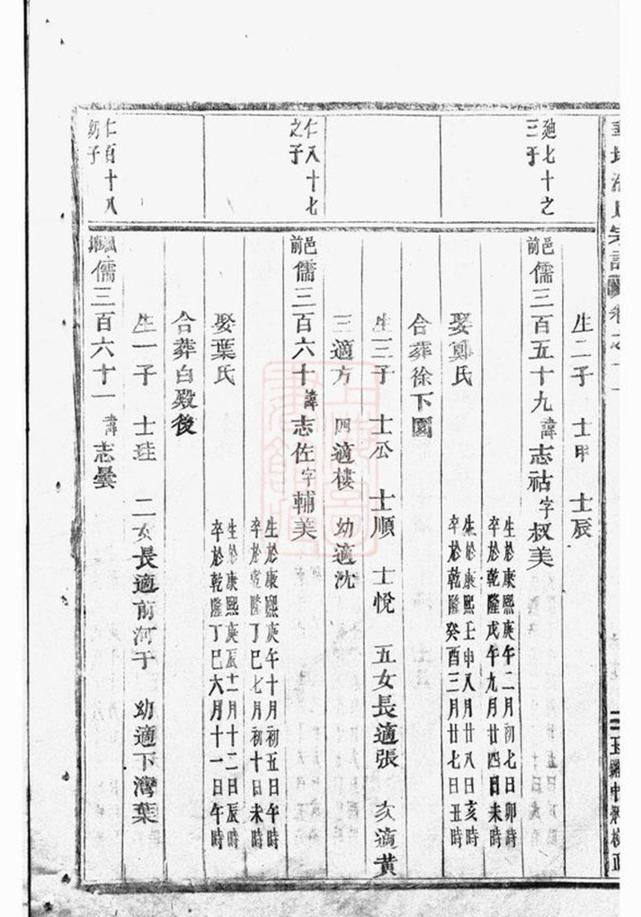 生二子 士甲 士辰
廸七十之
三子
邑前儒三百五十九諱志祜字叔美
生於康熙庚午二月初七日卯時
卒於乾隆戊午九月廿四日未時
娶鄭氏
生於康熙壬申八月廿八日亥時
卒於乾隆癸酉三月廿七日丑時
合葬徐下園
生三子 士公 士順 士悅 五女長適張 次適黃
三適方 四適樓 幼適沈
仁八十七
之子
邑前儒三百六十諱志佐字輔美
生於康熙庚午十月初五日午時
卒於乾隆丁巳七月初十日未時
娶葉氏
生於康熙庚辰十一月十二日辰時
卒於乾隆丁巳六月十一日午時
合葬白殿後
生一子 士珪 二女長適前河于 幼適下灣葉
仁百十八
幼子
儒三百六十一諱志曇